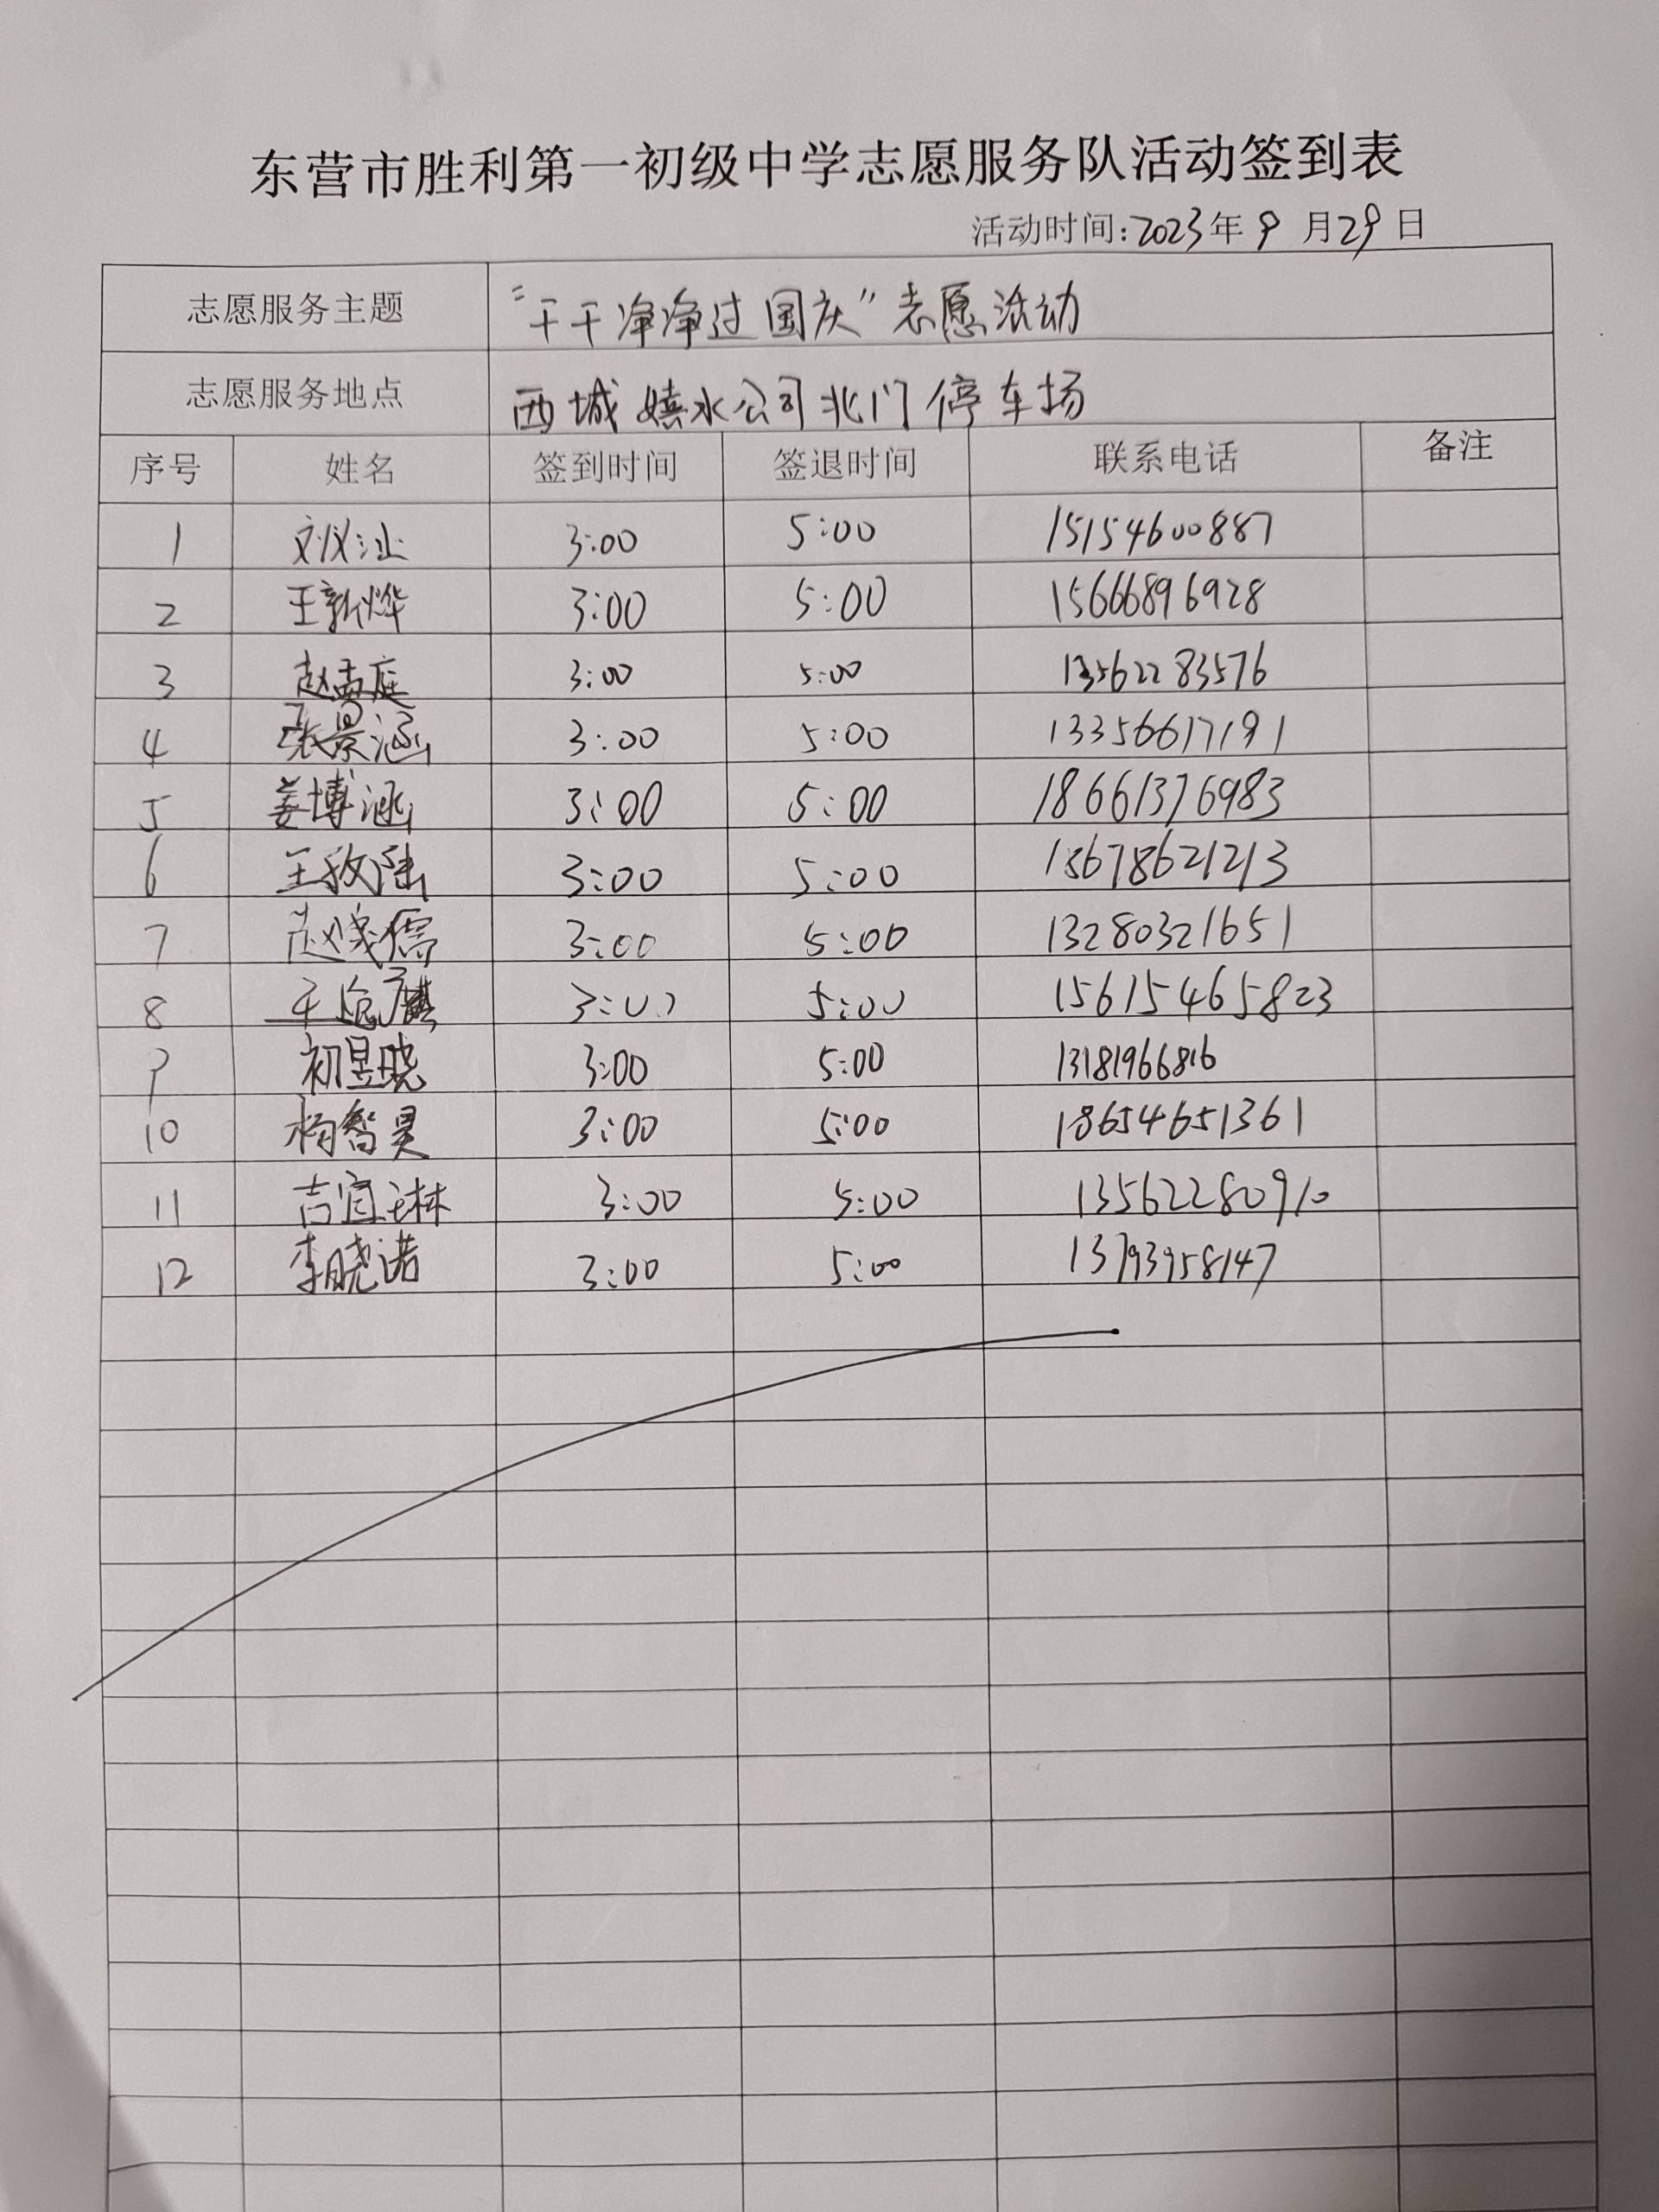 东营市胜利第一初级中学志愿服务队活动签到表
活动时间:2023年9月29日
志愿服务主题 “干干净净过国庆”志愿活动
志愿服务地点 西城嬉水公司北门停车场
序号 姓名 签到时间 签退时间 联系电话 备注
1 刘议沚 3:00 5:00 15154600887
2 王新烨 3:00 5:00 15666896928
3 赵孟庭 3:00 5:00 13562283576
4 张景涵 3:00 5:00 13356617191
5 姜博涵 3:00 5:00 18661376983
6 3:00 5:00 13678621213
7 3:00 5:00 13280321651
8 3:00 5:00 15615465823
9 初昱晓 3:00 5:00 13181966816
10 杨智昊 3:00 5:00 18654651361
11 吉宜琳 3:00 5:00 13562280910
12 李晓诺 3:00 5:00 13793958147